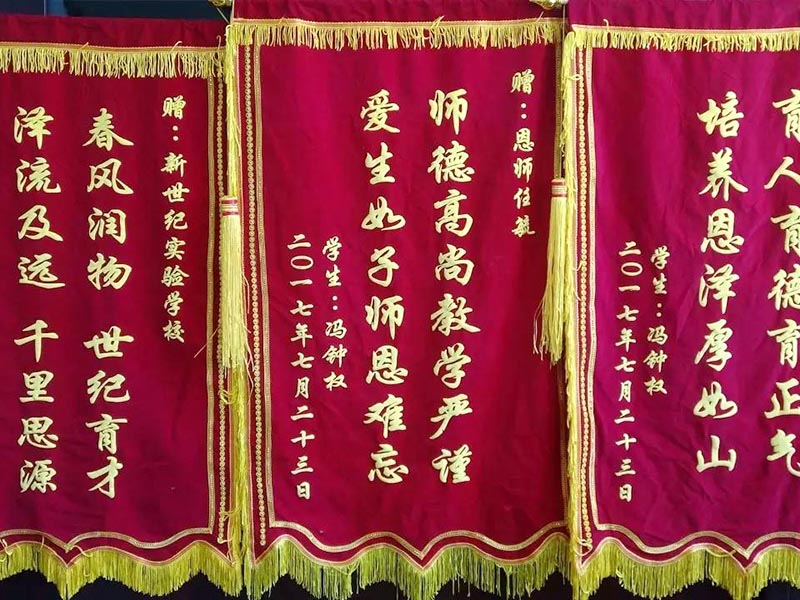 赠：新世纪实验学校
春风润物 世纪育才
泽流及远 千里思源
赠：恩师任毓
师德高尚教学严谨
爱生如子师恩难忘
学生：冯钟权
二〇一七年七月二十三日
育人育德育正气
培养恩泽厚如山
学生：冯钟权
二〇一七年七月二十三日